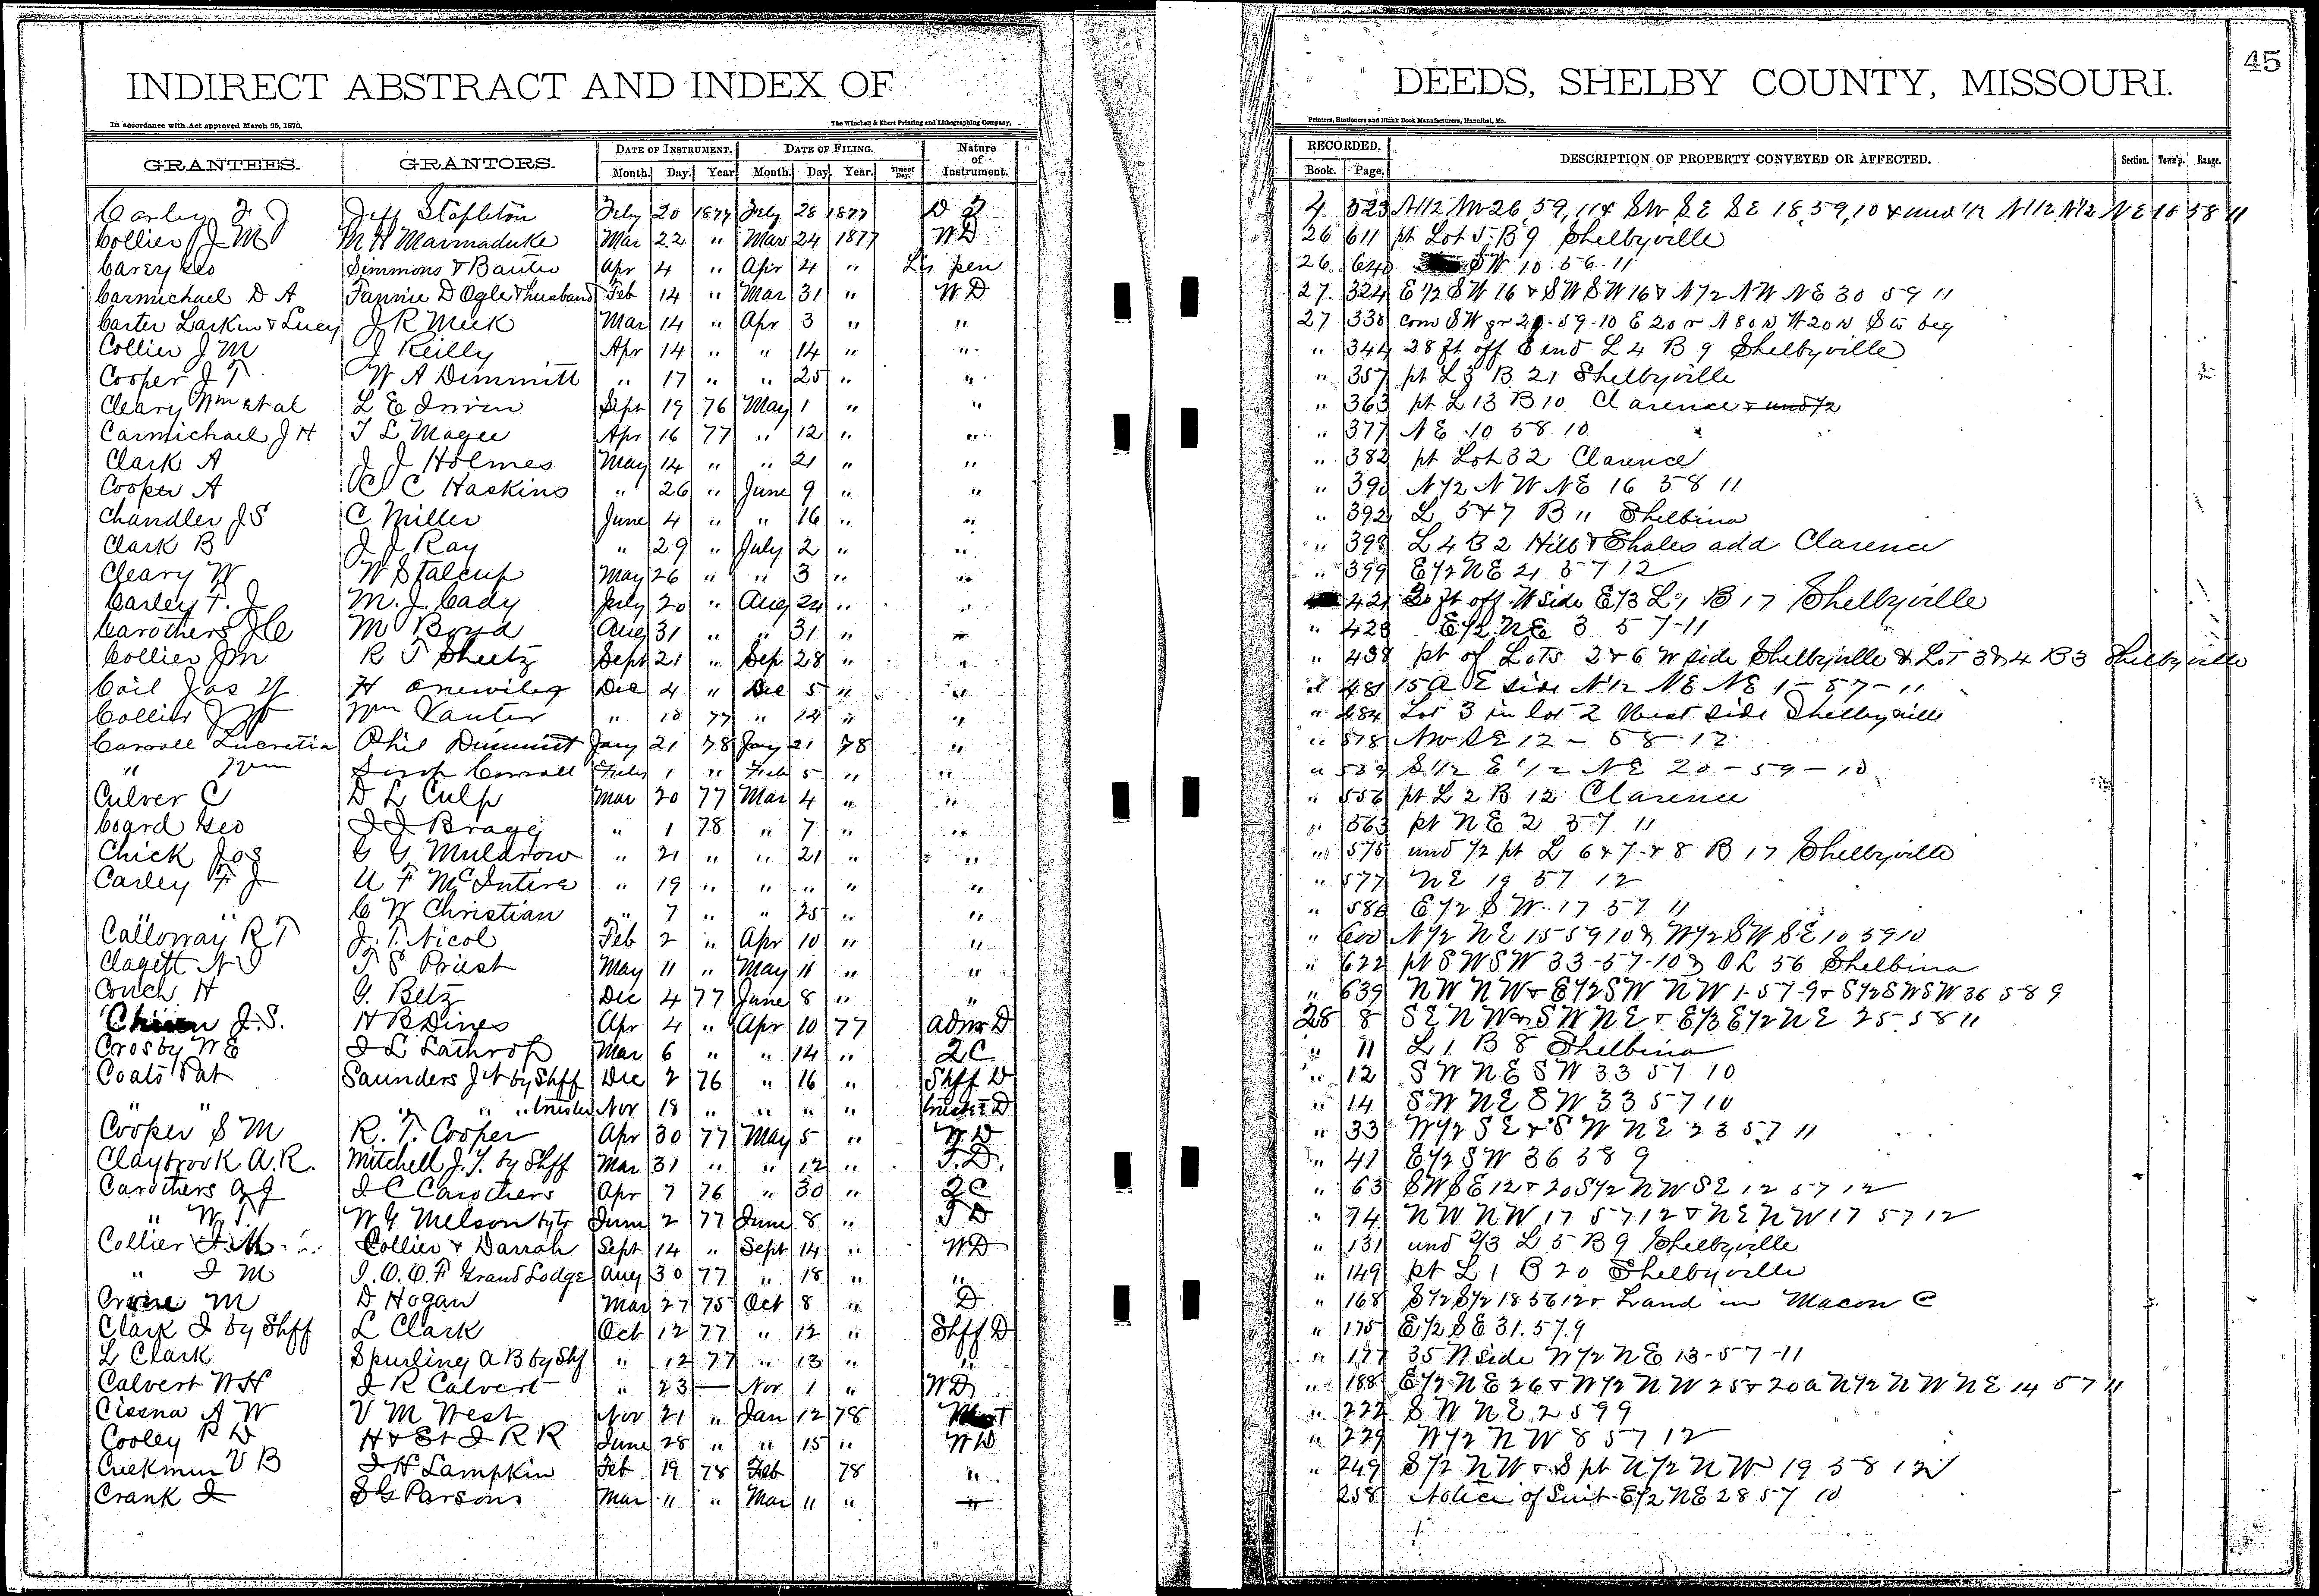 INDIRECT ABSTRACT AND INDEX OF DEEDS, SHELBY COUNTY, MISSOURI.
45
In accordance with Act approved March 25, 1870.
The Winchell & Ebert Printing and Lithographing Company,
Printers, Stationers and Blank Book Manufacturers, Hannibal, Mo.
GRANTEES. GRANTORS. DATE OF INSTRUMENT. DATE OF FILING. Nature of Instrument. RECORDED. DESCRIPTION OF PROPERTY CONVEYED OR AFFECTED. Section. Town'p. Range.
Month. Day. Year. Month. Day. Year. Time of Day. Book. Page.
Carley F J Jeff Stapleton Feby 20 1877 Feby 28 1877 D 4 523 N1/2 26, 59, 11 & SW SE SE 18, 59, 10 & und 1/2 N1/2 N1/2 NE 10 58 11
Collier J M M H Marmaduke Mar 22 " Mar 24 1877 WD 26 611 pt Lot 5 B 9 Shelbyville
Carey Geo Simmons & Banter Apr 4 " Apr 4 " Lis pen 26 640 SW 10. 56. 11
Carmichael D A Fannie D Ogle & husband Feb 14 " Mar 31 " WD 27 324 E 1/2 SW 16 & SW SW 16 & N 1/2 NW NE 30 59 11
Carter Larkin & Lucy J R Meek Mar 14 " Apr 3 " " 27 338 com SW gr 59-10 E 20 r N 80 W 20 S to beg
Collier J M J Reilly Apr 14 " " 14 " " " 344 28 ft off E end L 4 B 9 Shelbyville
Cooper J T W A Dimmitt " 17 " " 25 " " " 357 pt L 3 B 21 Shelbyville
Cleary Wm et al L E Irvin Sept 19 76 May 1 " " " 363 pt L 13 B 10 Clarence & und 1/2
Carmichael J H T L Magee Apr 16 77 " 12 " " " 377 NE 10 58 10
Clark A J J Holmes May 14 " " 21 " " " 382 pt Lot 32 Clarence
Cooper A C C Haskins " 26 " June 9 " " " 390 N 1/2 N W NE 16 58 11
Chandler J S C Miller June 4 " " 16 " " " 392 L 5 & 7 B 11 Shelbina
Clark B J J Ray " 29 " July 2 " " " 398 L 4 B 2 Hill & Ehales add Clarence
Cleary W W Stalcup May 26 " " 3 " " " 399 E 1/2 NE 21 57 12
Carley F. J M. J. Cady July 20 " Aug 24 " " 421 ft off W side E 1/3 L 1 B 17 Shelbyville
Carothers J C M Boyd Aug 31 " " 31 " " " 428 E 1/2 NE 3 57-11
Collier J M R T Sheetz Sept 21 " Sep 28 " " " 438 pt of Lots 2 & 6 W side Shelbyville & Lot 3 & 4 B 3 Shelbyville
Cail Jas H Onewiley Dec 4 " Dec 5 " " " 481 15 A E side N 1/2 NE NE 1-57-11
Collier Wm Vanter " 10 77 " 12 " " " 484 Lot 3 in lot 2 West side Shelbyville
Carroll Lucretia Phil Dimmitt Jany 21 78 Jany 21 78 " " 578 NW SE 12 - 58 . 12
" Wm Carroll Feby 1 " Feb 5 " " " 539 S 1/2 E 1/2 NE 20 - 59 - 10
Culver C D L Culp Mar 20 77 Mar 4 " " " 556 pt L 2 B 12 Clarence
Coard Geo J J Bragg " 1 78 " 7 " " " 563 pt NE 2 57 11
Chick Jos G G Muldrow " 21 " " 21 " " " 575 und 1/2 pt L 6 & 7 & 8 B 17 Shelbyville
Carley F J U F McIntire " 19 " " " " " " 577 NE 19 57 12
" " C W Christian " 7 " " 25 " " " 586 E 1/2 SW 17 57 11
Calloway R T J. T. Nicol Feb 2 " Apr 10 " " " 600 N 1/2 NE 15 59 10 & W 1/2 SW SE 10 59 10
Clagett N T S Priest May 11 " May 11 " " " 622 pt SW SW 33-57-10 & OL 56 Shelbina
Couch H G. Betz Dec 4 77 June 8 " " " 639 NW NW & E 1/2 SW NW 1-57-9 & S 1/2 SW SW 36 58 9
J. S. H B Dines Apr 4 " Apr 10 77 Admr D 28 8 SE NW & SW NE & E 1/3 E 1/2 NE 25 58 11
Crosby W E J L Lathrop Mar 6 " " 14 " QC " 11 L 1 B 8 Shelbina
Coats Pat Saunders J N by Shff Dec 2 76 " 16 " Shff D " 12 SW NE SW 33 57 10
" " " " " trustee Nov 18 " " " " trustee D " 14 SW NE SW 33 57 10
Cooper S M R. T. Cooper Apr 30 77 May 5 " WD " 33 W 1/2 SE & SW NE 23 57 11
Claybrook A. R. Mitchell J. T. by Shff Mar 31 " " 12 " T. D. " 41 E 1/2 SW 36 58 9
Carothers A J J C Carothers Apr 7 76 " 30 " QC " 63 SW SE 12 & 20 S 1/2 NW SE 12 57 12
" W. T. W G Melson by tr June 2 77 June 8 " T D " 74 NW NW 17 57 12 & NE NW 17 57 12
Collier J M Collier & Darrah Sept 14 " Sept 14 " WD " 131 und 2/3 L 5 B 9 Shelbyville
" J M I. O. O. F Grand Lodge Aug 30 77 " 18 " " " 149 pt L 1 B 20 Shelbyville
M D Hogan Mar 27 75 Oct 8 " D " 168 S 1/2 S 1/2 18 56 12 & Land in Macon C
Clark J by Shff L Clark Oct 12 77 " 12 " Shff D " 175 E 1/2 SE 31. 57. 9
L Clark Spurling A B by Shf " 12 77 " 13 " " " 177 35 N side W 1/2 NE 13-57-11
Calvert W H J R Calvert " 23 — Nov 1 " WD " 188 E 1/2 NE 26 & W 1/2 NW 25 & 20 a N 1/2 NW NE 14 57 11
Cissna A W V M West Nov 21 " Jan 12 78 " 222 SW NE 2 59 9
Cooley R D H & St J R R June 28 " " 15 " WD " 229 W 1/2 NW 8 57 12
Creekmur V B J H Lampkin Feb 19 78 Feb 78 " " 249 S 1/2 NW & S pt N 1/2 NW 19 58 12
Crank J S G Parsons Mar 11 " Mar 11 " " 258 Notice of Suit E 1/2 NE 28 57 10